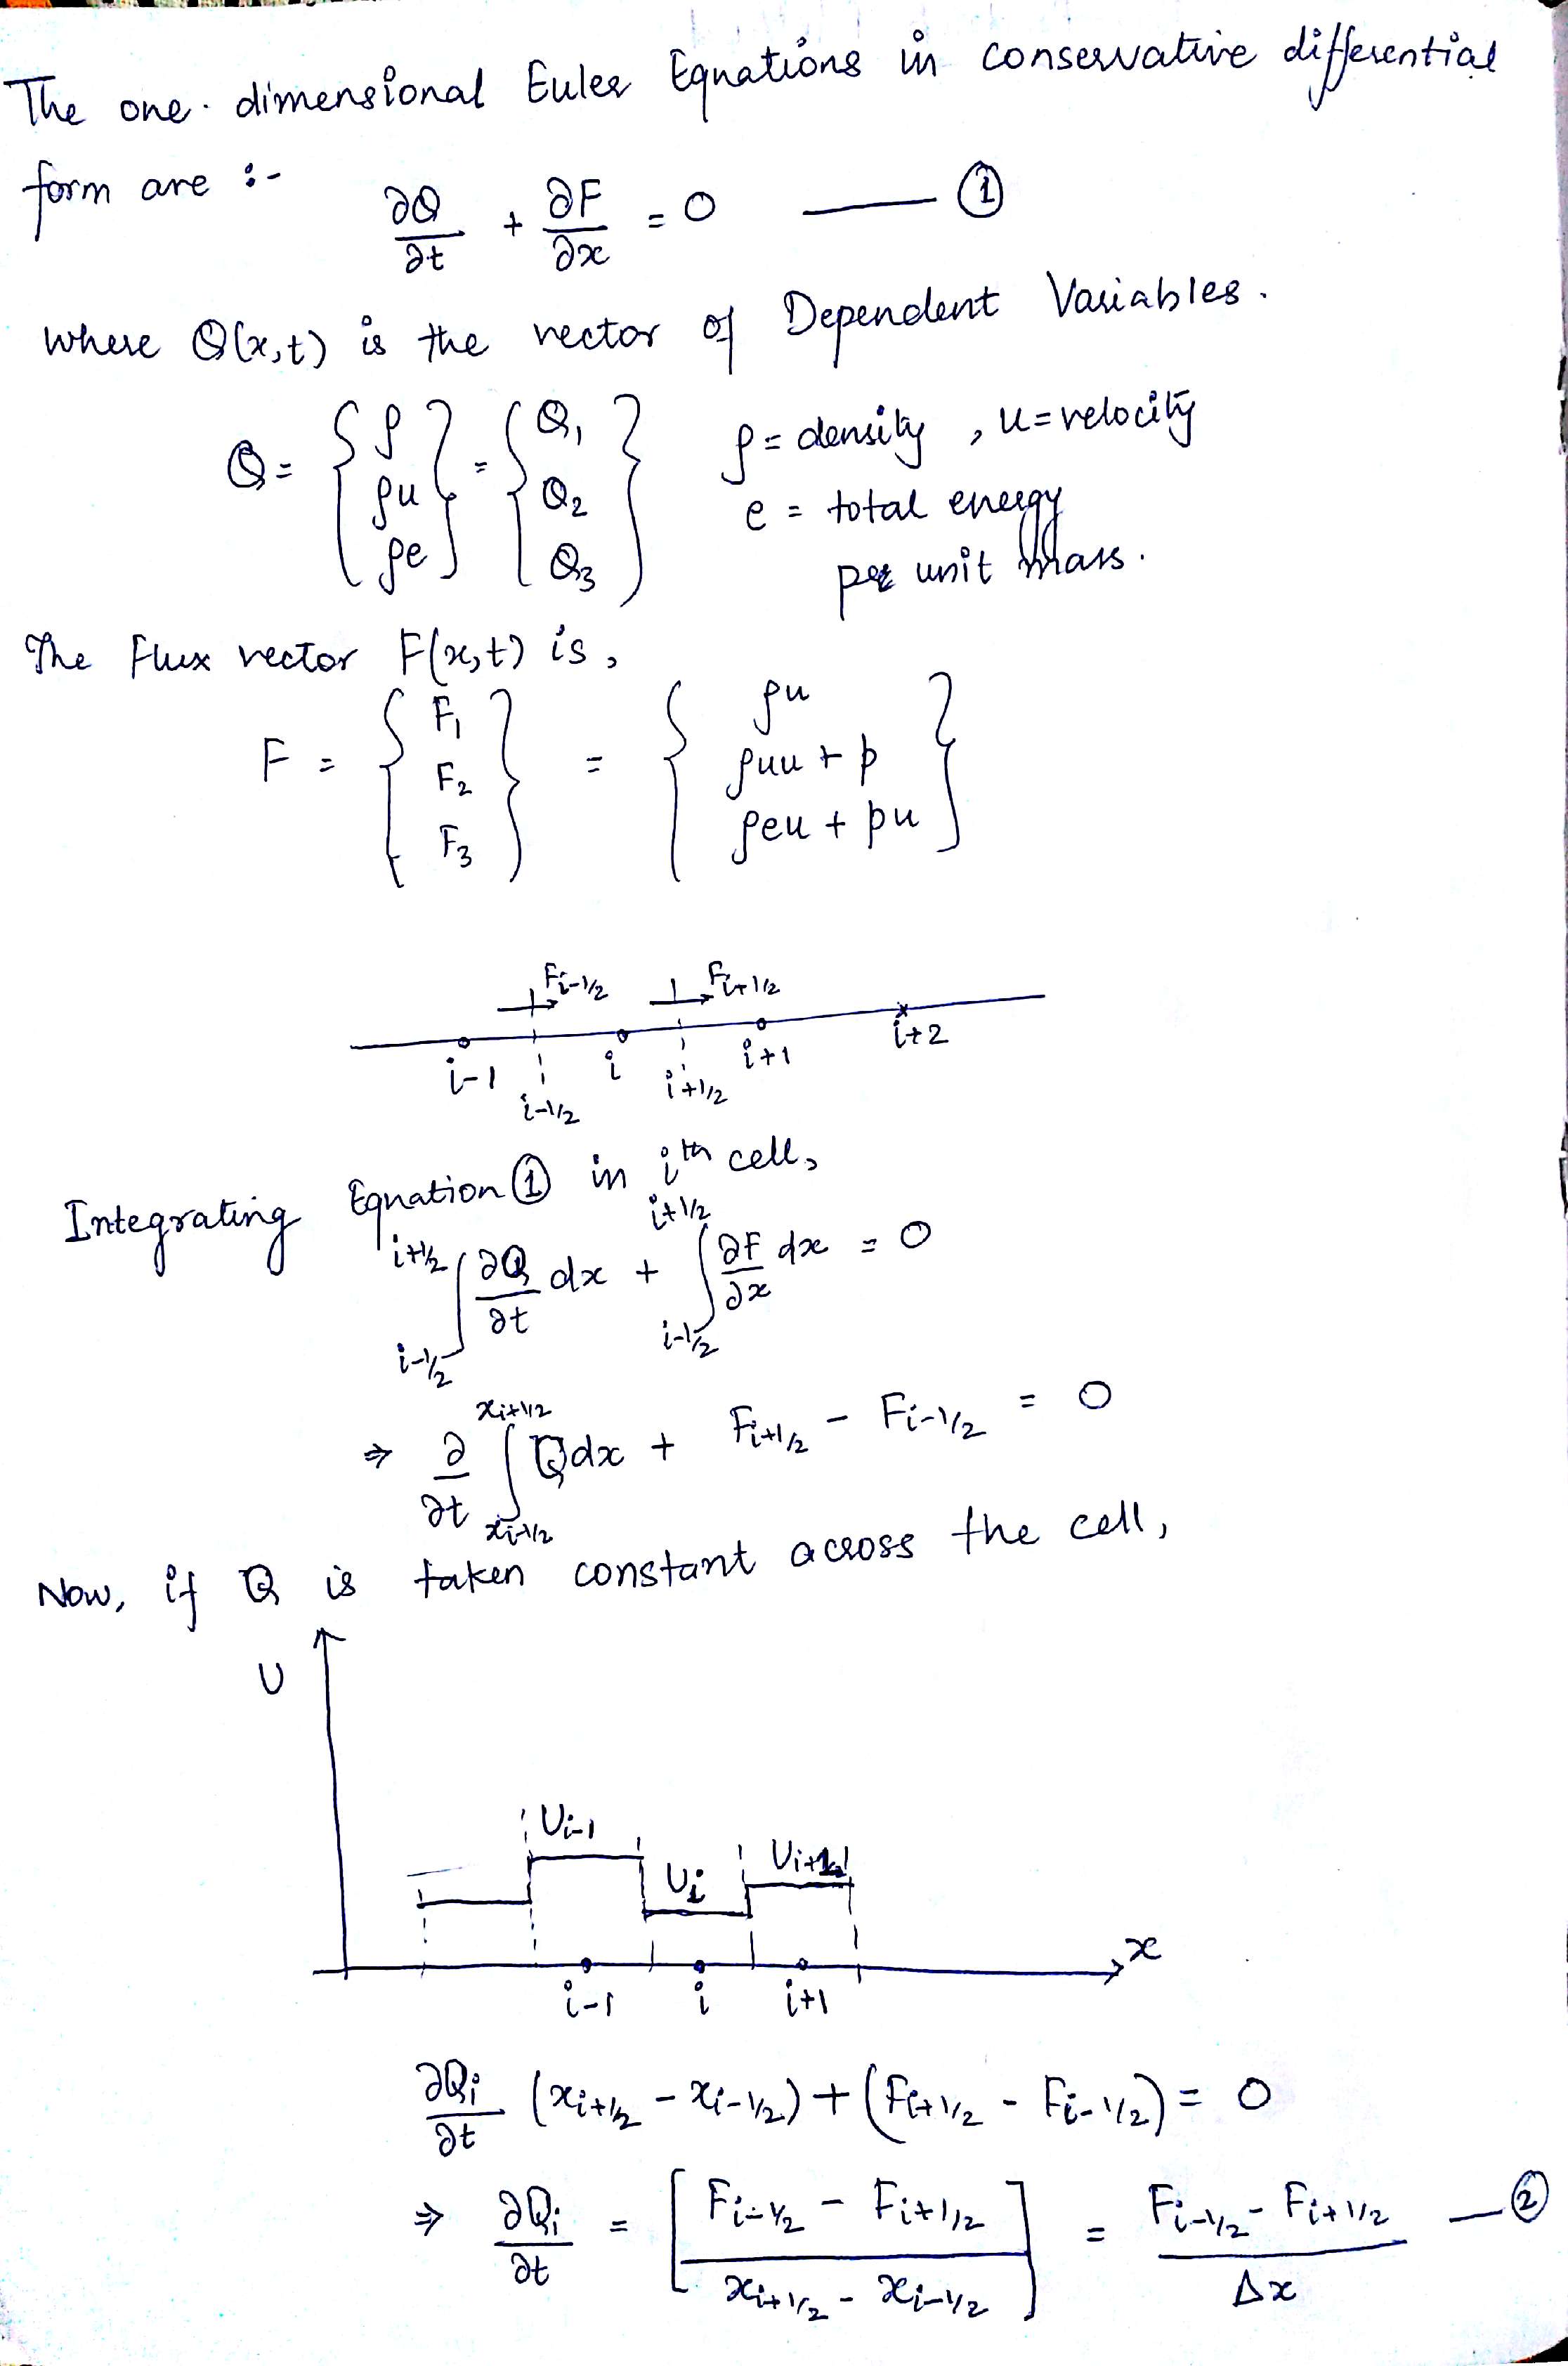 The one-dimensional Euler Equations in conservative differential
form are :- ∂Q/∂t + ∂F/∂x = 0 —— ①
where Q(x,t) is the vector of Dependent Variables.
Q = {ρ, ρu, ρe} = {Q₁, Q₂, Q₃} ρ = density, u = velocity
e = total energy
per unit mass.
The Flux vector F(x,t) is,
F = {F₁, F₂, F₃} = {ρu, ρuu + p, ρeu + pu}
F_{i-1/2} F_{i+1/2}
i-1 i i+1 i+2
i-1/2 i+1/2
Integrating Equation ① in i^th cell,
∫_{i-1/2}^{i+1/2} ∂Q/∂t dx + ∫_{i-1/2}^{i+1/2} ∂F/∂x dx = 0
⇒ ∂/∂t ∫_{x_{i-1/2}}^{x_{i+1/2}} Q dx + F_{i+1/2} - F_{i-1/2} = 0
Now, if Q is taken constant across the cell,
U
U_{i-1} U_i U_{i+1}
x
i-1 i i+1
∂Q_i/∂t (x_{i+1/2} - x_{i-1/2}) + (F_{i+1/2} - F_{i-1/2}) = 0
⇒ ∂Q_i/∂t = [(F_{i-1/2} - F_{i+1/2})/(x_{i+1/2} - x_{i-1/2})] = (F_{i-1/2} - F_{i+1/2})/Δx — ②